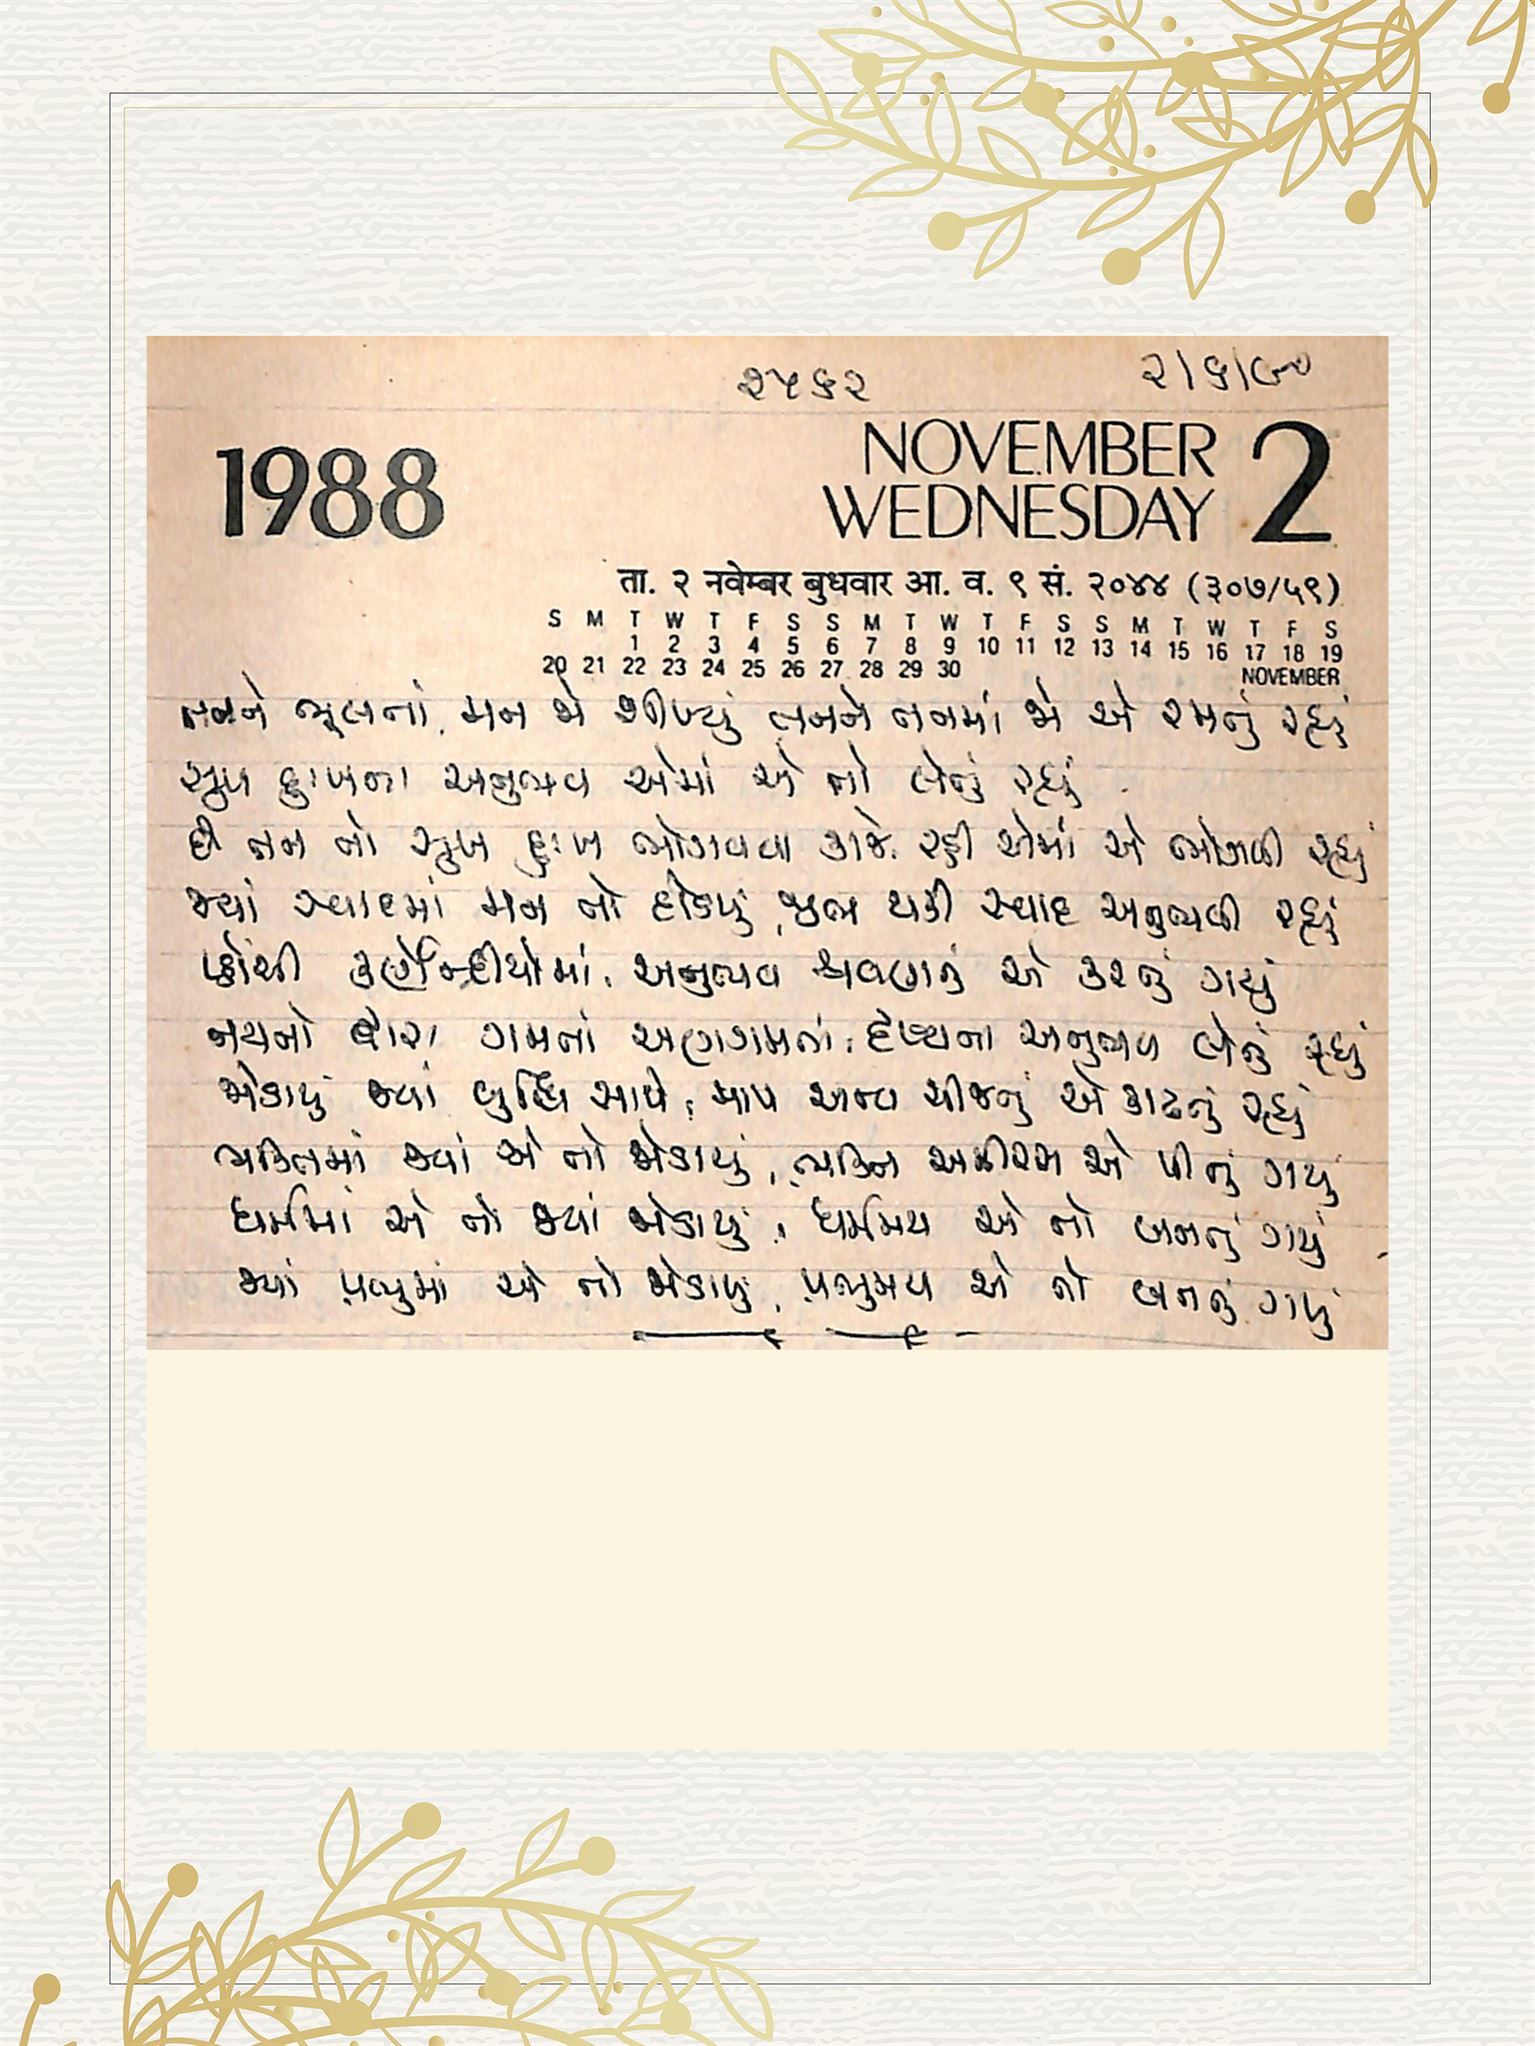 ૨૫૬૨ ૨|૬|૯૦
1988 NOVEMBER 2
WEDNESDAY
ता. २ नवेम्बर बुधवार आ. व. ९ सं. २०४४ (३०७/५९)
S M T W T F S S M T W T F S S M T W T F S
1 2 3 4 5 6 7 8 9 10 11 12 13 14 15 16 17 18 19
20 21 22 23 24 25 26 27 28 29 30 NOVEMBER
તનને ભૂલતાં, મન જે શીખ્યું તનને તનમાં જે એ રમતું રહ્યું
સુખ દુઃખના અનુભવ એમાં એ તો લેતું રહ્યું
દી તન તો સુખ દુઃખ ભોગવવા કાજે, રહી એમાં એ ભોગવી રહ્યું
જ્યાં સ્વાદમાં મન તો દોડયું, જીભ થકી સ્વાદ અનુભવી રહ્યું
પ્હોંચી કર્ણેન્દ્રીયોમાં, અનુભવ શ્રવણનું એ કરતું ગયું
નયનો દ્વારા ગમતાં અણગમતાં, દૃશ્યના અનુભવ લેતું રહ્યું
જોડાયું જ્યાં બુદ્ધિ સાથે, માપ અન્ય ચીજનું એ કાઢતું રહ્યું
ભક્તિમાં જ્યાં એ તો જોડાયું, ભક્તિ અમીરસ એ પીતું ગયું
ધર્મમાં એ તો જ્યાં જોડાયું, ધર્મમય એ તો બનતું ગયું
જ્યાં પ્રભુમાં એ તો જોડાયું, પ્રભુમય એ તો બનતું ગયું